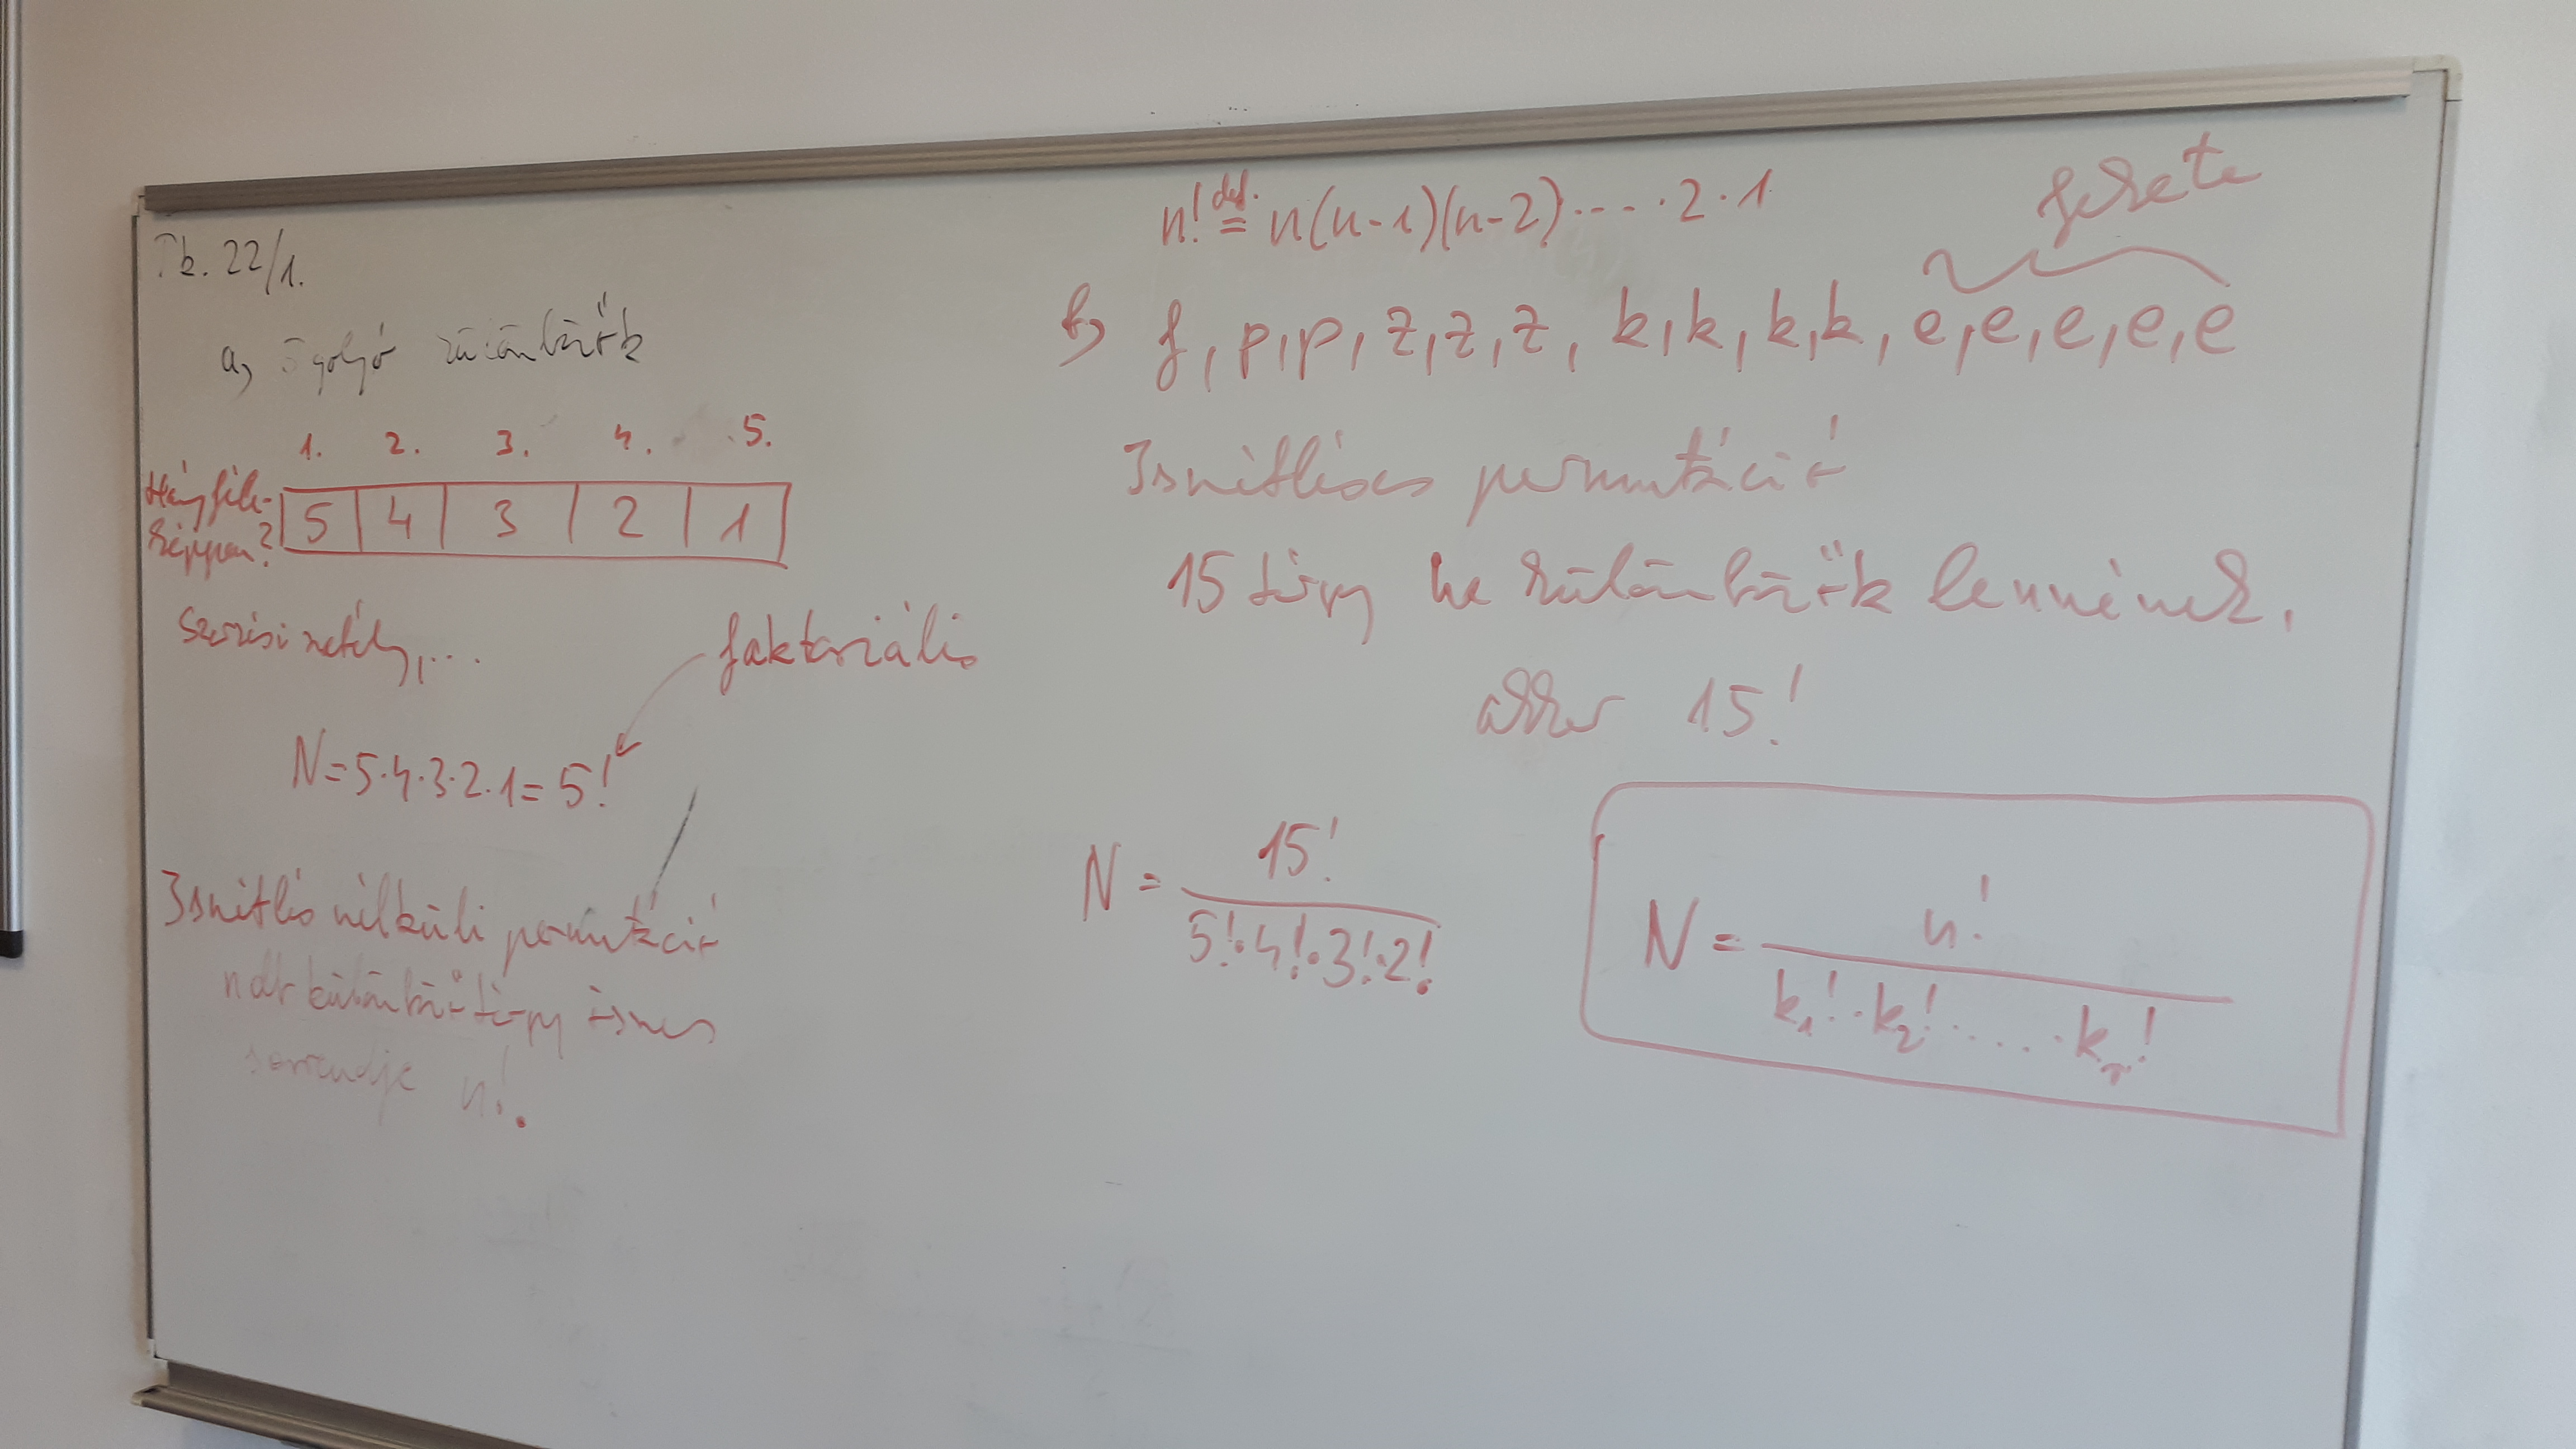 Tk. 22/1.
a, 5 golyó különbözők
1. 2. 3. 4. 5.
Hányféle-
képpen?
5 4 3 2 1
Szorzási szabály, ...
faktoriális
N=5·4·3·2·1=5!
Ismétlés nélküli permutáció
n db különböző tárgy összes
sorrendje n!.
n! def.= n(n-1)(n-2)·...·2·1
fekete
b, f, p,p, z,z,z, k,k,k,k, e,e,e,e,e
Ismétléses permutáció
15 tárgy ha különbözők lennének,
akkor 15!
N = 15! / 5!·4!·3!·2!
N = n! / k₁!·k₂!·....·kᵣ!